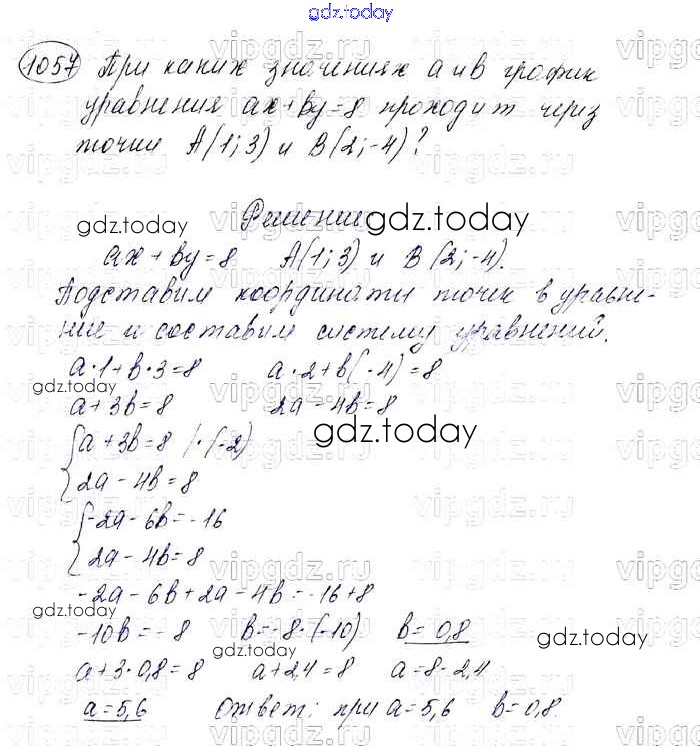 gdz.today
1057 При каких значениях a и b график
уравнения ax + by = 8 проходит через
точки A(1; 3) и B(2; -4)?
Решение
gdz.today gdz.today
ax + by = 8 A(1; 3) и B(2; -4).
Подставим координаты точек в уравне-
ние и составим систему уравнений.
a·1 + b·3 = 8 a·2 + b(-4) = 8
gdz.today gdz.today
a + 3b = 8 2a - 4b = 8
gdz.today
{ a + 3b = 8 /·(-2)
2a - 4b = 8
{ -2a - 6b = -16
2a - 4b = 8
-2a - 6b + 2a - 4b = -16 + 8
gdz.today
-10b = -8 b = -8·(-10) b = 0,8
gdz.today gdz.today
a + 3·0,8 = 8 a + 2,4 = 8 a = 8 - 2,4
a = 5,6 Ответ: при a = 5,6 b = 0,8.
gdz.today
vipgdz.ru